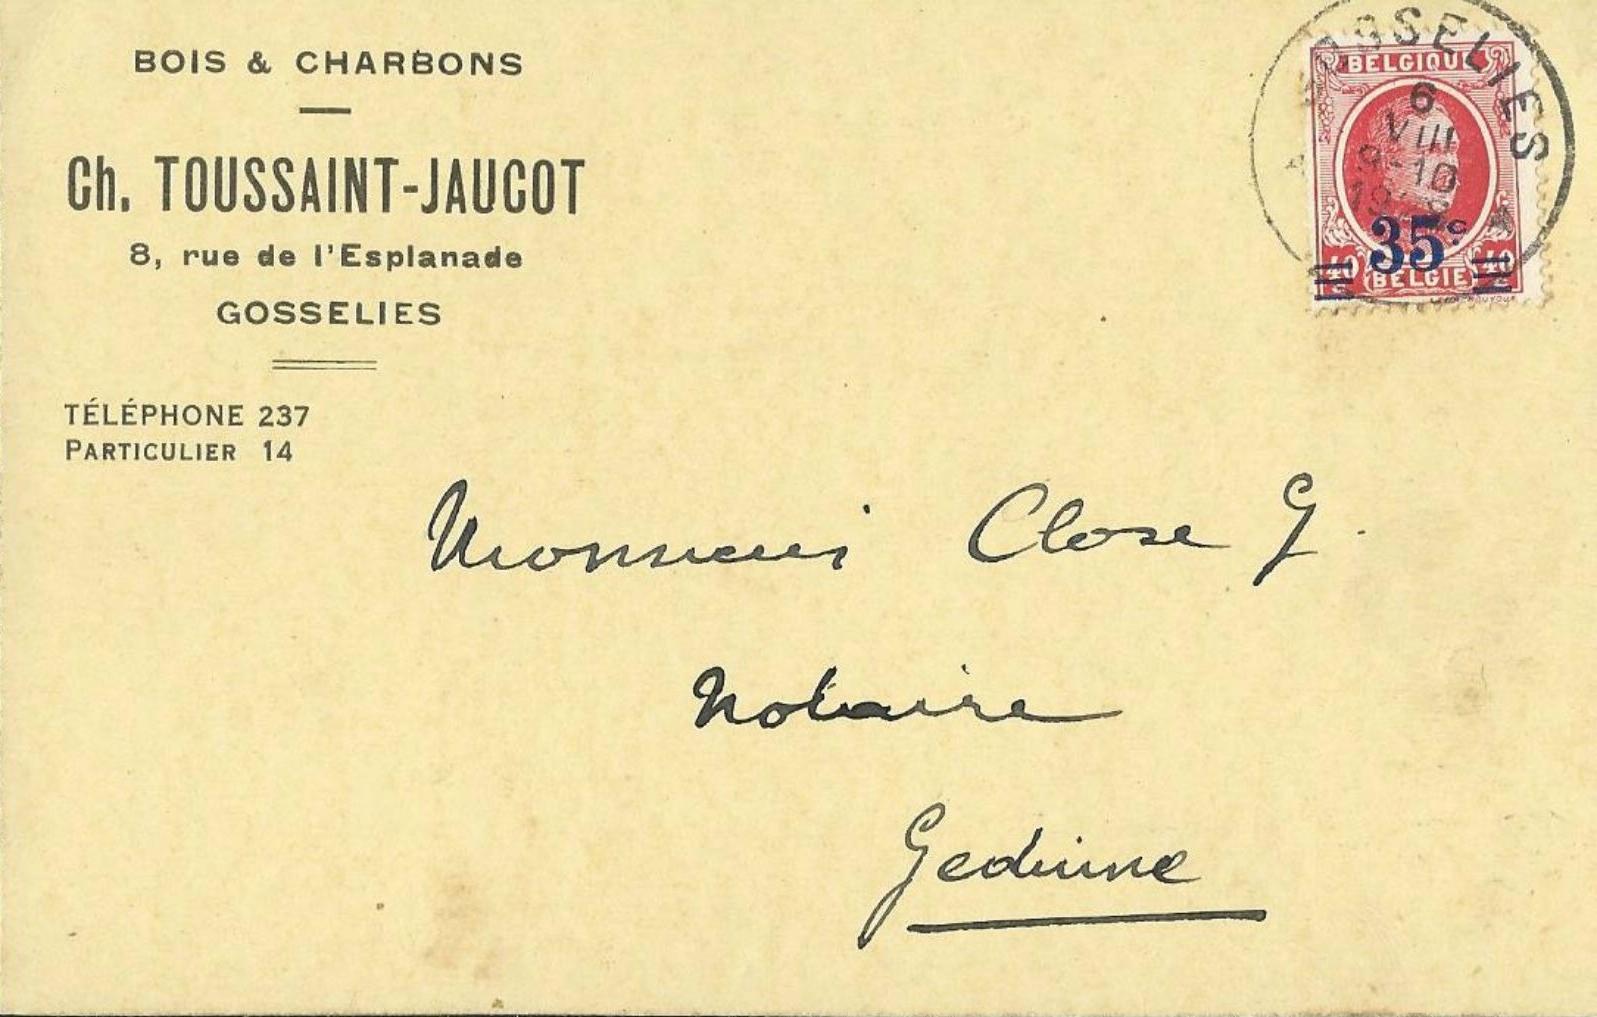 BOIS & CHARBONS
Ch. TOUSSAINT-JAUCOT
8, rue de l'Esplanade
GOSSELIES
TÉLÉPHONE 237
PARTICULIER 14
GOSSELIES
BELGIQUE
6
VIII
9-10
35c
40 BELGIË 40
Monsieur Close G.
Notaire
Gedinne